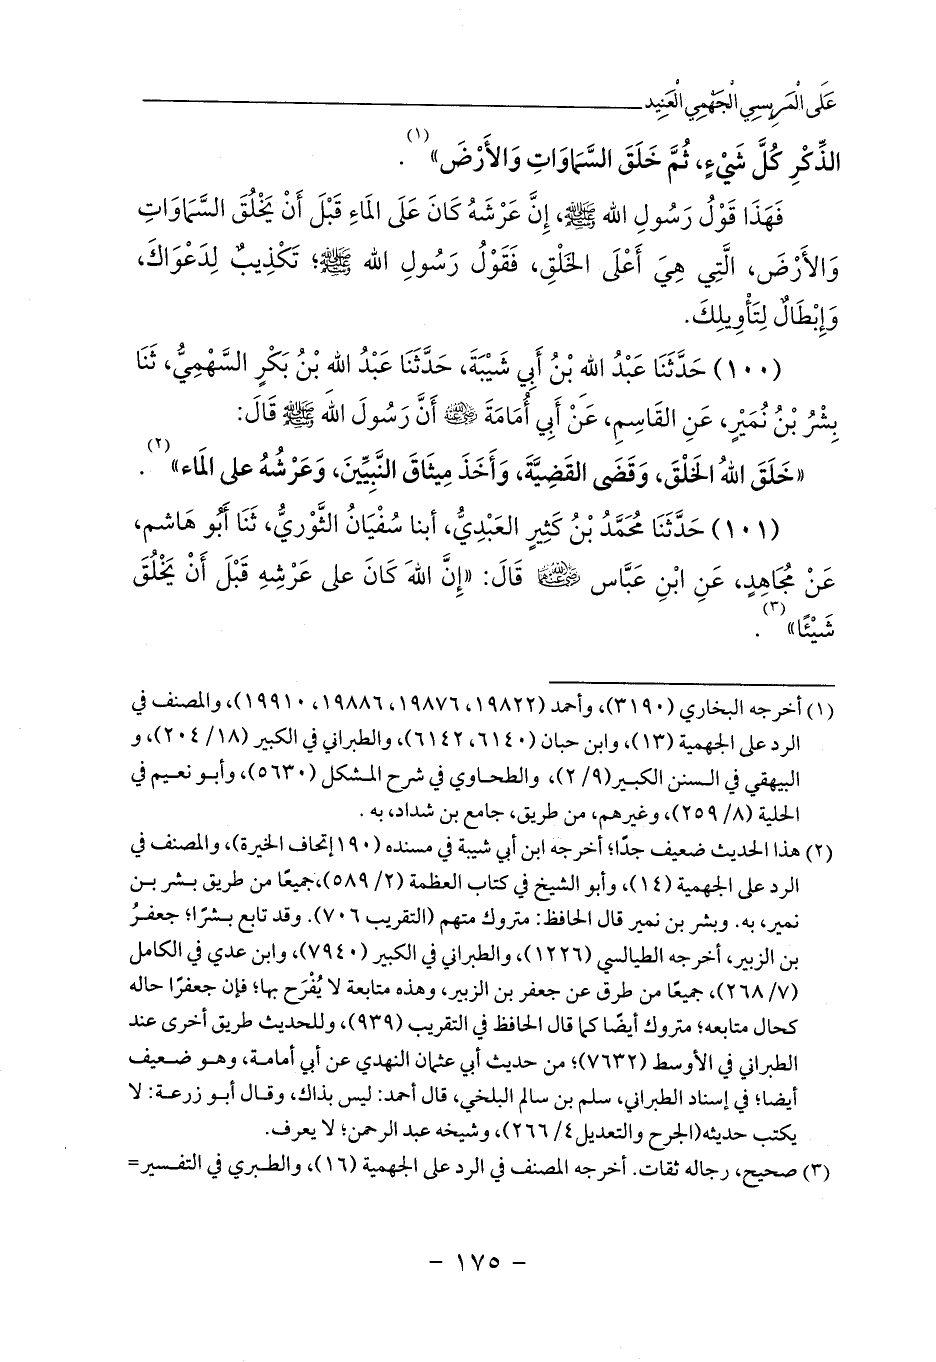 عَلَى الْمَرِيسِي الْجَهْمِي الْعَنِيد
الذِّكْرِ كُلَّ شَيْءٍ، ثُمَّ خَلَقَ السَّمَاوَاتِ وَالأَرْضَ» (١).
فَهَذَا قَوْلُ رَسُولِ الله ﷺ، إِنَّ عَرْشَهُ كَانَ عَلَى المَاءِ قَبْلَ أَنْ يَخْلُقَ السَّمَاوَاتِ
وَالأَرْضَ، الَّتِي هِيَ أَعْلَى الخَلْقِ، فَقَوْلُ رَسُولِ الله ﷺ؛ تَكْذِيبٌ لِدَعْوَاكَ،
وَإِبْطَالٌ لِتَأْوِيلِكَ.
(١٠٠) حَدَّثَنَا عَبْدُ الله بْنُ أَبِي شَيْبَةَ، حَدَّثَنَا عَبْدُ الله بْنُ بَكْرٍ السَّهْمِيُّ، ثَنَا
بِشْرُ بْنُ نُمَيْرٍ، عَنِ القَاسِمِ، عَنْ أَبِي أُمَامَةَ رضي الله عنه أَنَّ رَسُولَ الله ﷺ قَالَ:
«خَلَقَ اللهُ الخَلْقَ، وَقَضَى القَضِيَّةَ، وَأَخَذَ مِيثَاقَ النَّبِيِّينَ، وَعَرْشُهُ على المَاء» (٢).
(١٠١) حَدَّثَنَا مُحَمَّدُ بْنُ كَثِيرٍ العَبْدِيُّ، أبنا سُفْيَانُ الثَّوْرِيُّ، ثَنَا أَبُو هَاشم،
عَنْ مُجَاهِدٍ، عَنِ ابْنِ عَبَّاس رضي الله عنهما قَالَ: «إِنَّ اللهَ كَانَ على عَرْشِهِ قَبْلَ أَنْ يَخْلُقَ
شَيْئًا» (٣).
(١) أخرجه البخاري (٣١٩٠)، وأحمد (١٩٨٢٢، ١٩٨٧٦، ١٩٨٨٦، ١٩٩١٠)، والمصنف في
الرد على الجهمية (١٣)، وابن حبان (٦١٤٠، ٦١٤٢)، والطبراني في الكبير (١٨/ ٢٠٤)، و
البيهقي في السنن الكبير(٩/ ٢)، والطحاوي في شرح المشكل (٥٦٣٠)، وأبو نعيم في
الحلية (٨/ ٢٥٩)، وغيرهم، من طريق، جامع بن شداد، به .
(٢) هذا الحديث ضعيف جدًا؛ أخرجه ابن أبي شيبة في مسنده (١٩٠إتحاف الخيرة)، والمصنف في
الرد على الجهمية (١٤)، وأبو الشيخ في كتاب العظمة (٢/ ٥٨٩)،جميعًا من طريق بشر بن
نمير، به. وبشر بن نمير قال الحافظ: متروك متهم (التقريب ٧٠٦). وقد تابع بشرًا؛ جعفرُ
بن الزبير، أخرجه الطيالسي (١٢٢٦)، والطبراني في الكبير (٧٩٤٠)، وابن عدي في الكامل
(٧/ ٢٦٨)، جميعًا من طرق عن جعفر بن الزبير، وهذه متابعة لا يُفْرَح بها؛ فإن جعفرًا حاله
كحال متابعه؛ متروك أيضًا كما قال الحافظ في التقريب (٩٣٩)، وللحديث طريق أخرى عند
الطبراني في الأوسط (٧٦٣٢)؛ من حديث أبي عثمان النهدي عن أبي أمامة، وهو ضعيف
أيضا؛ في إسناد الطبراني، سلم بن سالم البلخي، قال أحمد: ليس بذاك، وقال أبو زرعة: لا
يكتب حديثه(الجرح والتعديل٤/ ٢٦٦)، وشيخه عبد الرحمن؛ لا يعرف.
(٣) صحيح، رجاله ثقات. أخرجه المصنف في الرد على الجهمية (١٦)، والطبري في التفسير=
- ١٧٥ -